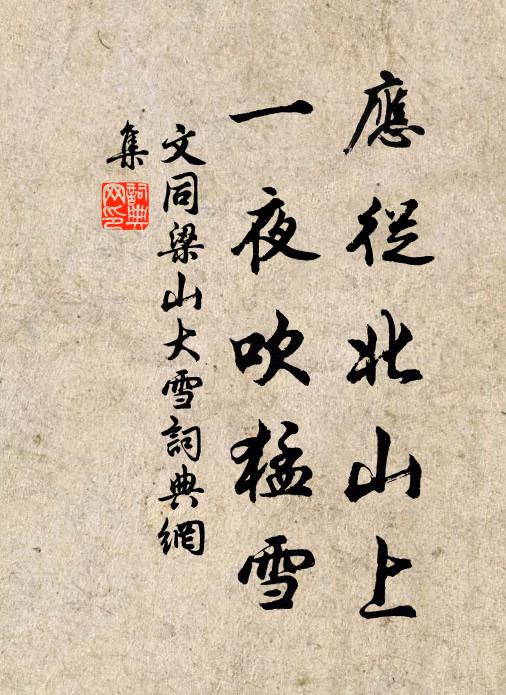 應從北山上
一夜吹猛雪
文同梁山大雪詞典網
集
詞典
网印